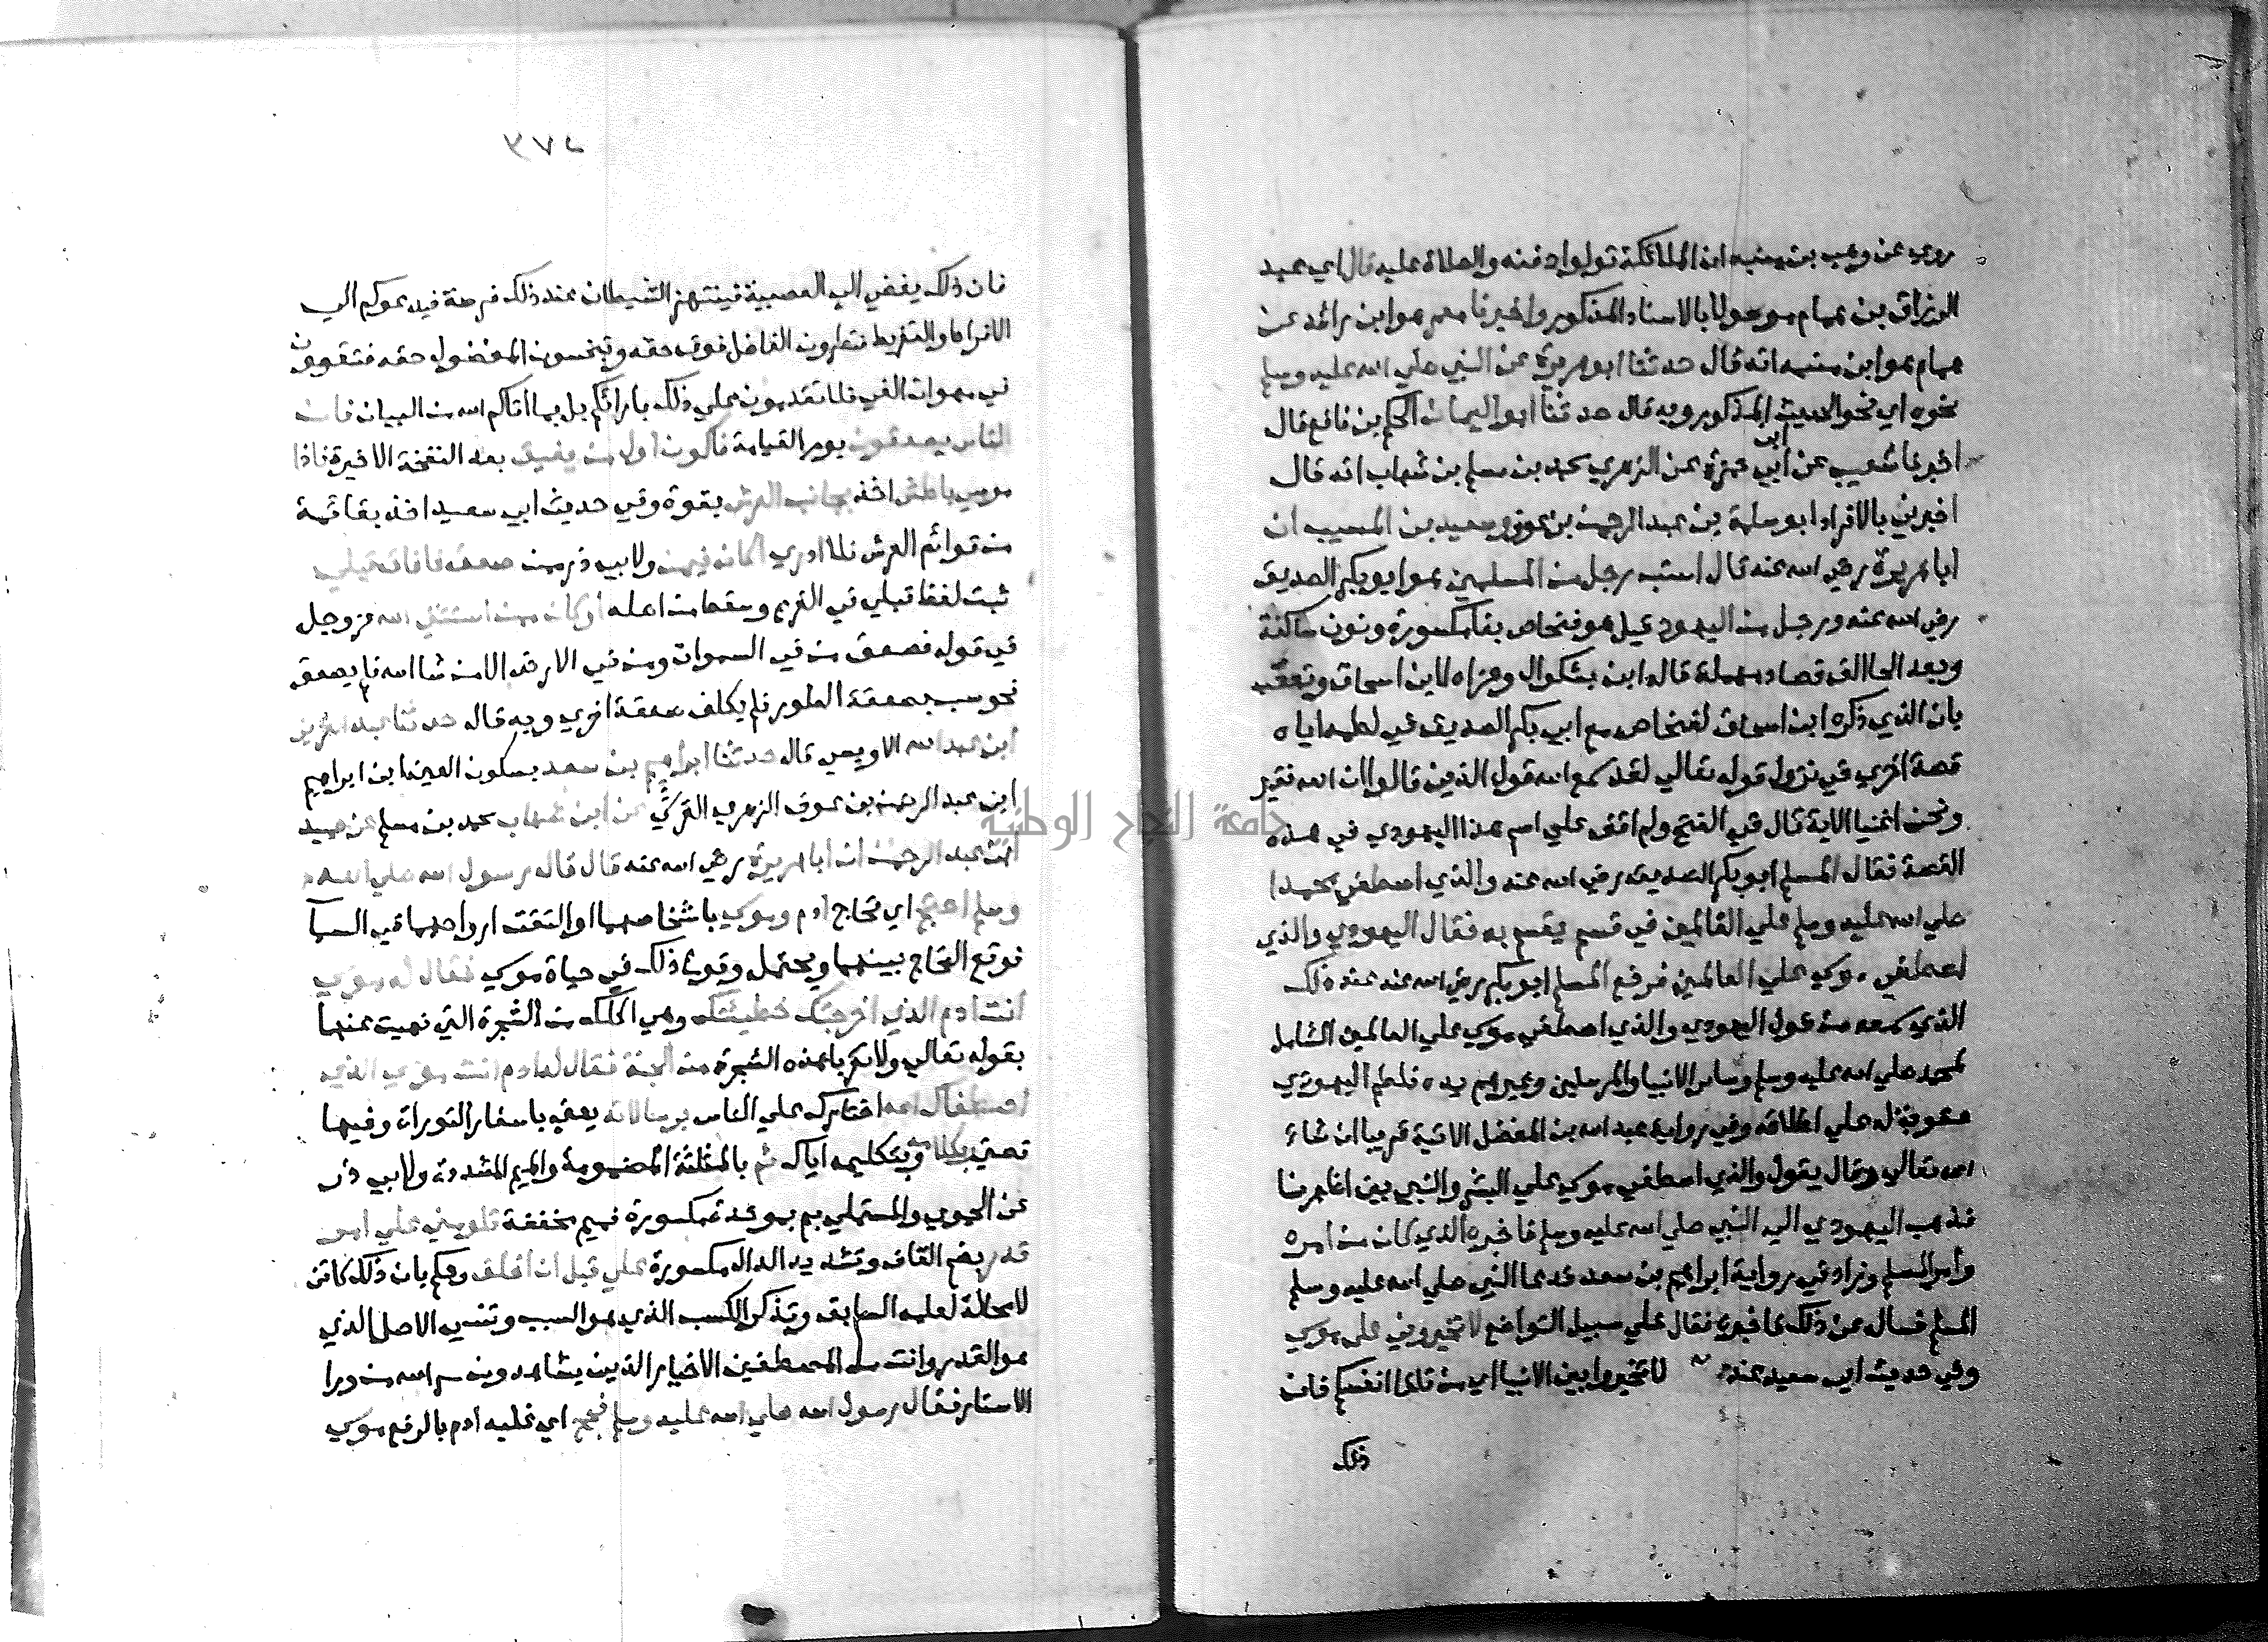 روي عن وهب بن منبه ان الملائكة تولوا دفنه والصلاة عليه قال اي عبد
الرزاق بن همام موصولا بالاسناد المذكور واخبرنا معمر هو ابن راشد عن
همام هو ابن منبه انه قال حدثنا ابو هريرة عن النبي صلي الله عليه وسلم
نحوه اي نحو الحديث المذكور وبه قال حدثنا ابو اليمان الحكم بن نافع قال
اخبرنا شعيب عن ابي ابن حمزة عن الزهري محمد بن مسلم بن شهاب انه قال
اخبرني بالافراد ابو سلمة بن عبد الرحمن بن عوف وسعيد بن المسيب ان
ابا هريرة رضي الله عنه قال استب رجل من المسلمين هو ابو بكر الصديق
رضي الله عنه ورجل من اليهود قيل هو فنحاص بفا مكسورة ونون ساكنة
وبعد الحا الف فصاد مهملة قاله ابن بشكوال وعزاه لابن اسحاق وتعقب
بان الذي ذكره ابن اسحاق لفنحاص مع ابي بكر الصديق في لطمه اياه
قصة اخري في نزول قوله تعالي لقد سمع الله قول الذين قالوا ان الله فقير
ونحن اغنيا الاية قال في الفتح ولم اقف علي اسم هذا اليهودي في هذه
القصة فقال المسلم ابو بكر الصديق رضي الله عنه والذي اصطفي محمدا
صلي الله عليه وسلم علي العالمين في قسم يقسم به فقال اليهودي والذي
اصطفي موسي علي العالمين فرفع المسلم ابو بكر رضي الله عنه عند ذلك
الذي سمعه من قول اليهودي والذي اصطفي موسي علي العالمين الشامل
لمحمد صلي الله عليه وسلم وساير الانبيا والمرسلين وغيرهم يده فلطم اليهودي
عقوبة له علي اطلاقه وفي رواية عبد الله بن الفضل الاتية قريبا ان شاء
الله تعالي وقال يقول والذي اصطفي موسي علي البشر والنبي بين اظهرنا
فذهب اليهودي الي النبي صلي الله عليه وسلم فاخبره الذي كان من امره
وامر المسلم وزاد في رواية ابراهيم بن سعد فدعا النبي صلي الله عليه وسلم
المسلم فسال عن ذلك فاخبره فقال علي سبيل التواضع لا تخيروني علي موسي
وفي حديث ابي سعيد عنده لا تخيروا بين الانبيا اي من تلقا انفسكم فان
ذلك
٣٧٤
فان ذلك يفضي الي العصبية فينتهز الشيطان عند ذلك فرصة فيدعوكم الي
الافراط والتفريط فتطرون الفاضل فوق حقه وتبخسون المفضول حقه فتقعون
في مهواة الغي فلا تقدمون علي ذلك بارائكم بل بما اتاكم الله من البيان فان
الناس يصعقون يوم القيامة فاكون اول من يفيق بعد النفخة الاخيرة فاذا
موسي باطش اخذ بجانب العرش بقوة وفي حديث ابي سعيد اخذ بقائمة
من قوائم العرش فلا ادري اكان فيمن ولابي ذر ممن صعق فافاق قبلي
ثبت لفظ قبلي في الفرع وسقط من اصله او كان ممن استثني الله عز وجل
في قوله فصعق من في السموات ومن في الارض الا من شا الله فلم يصعق
فحوسب بصعقة الطور فلم يكلف صعقة اخري وبه قال حدثنا عبد العزيز
ابن عبد الله الاويسي قال حدثنا ابراهيم بن سعد بسكون العين ابن ابراهيم
ابن عبد الرحمن بن عوف الزهري القرشي عن ابن شهاب محمد بن مسلم عن حميد
ابن عبد الرحمن ان ابا هريرة رضي الله عنه قال قال رسول الله صلي الله عليه
وسلم احتج اي تحاج ادم وموسي باشخاصهما او التقت ارواحهما في السما
فوقع التحاج بينهما ويحتمل وقوع ذلك في حياة موسي فقال له موسي
انت ادم الذي اخرجتك خطيئتك وهي اكلك من الشجرة التي نهيت عنها
بقوله تعالي ولا تقربا هذه الشجرة من الجنة فقال له ادم انت موسي الذي
اصطفاك الله اختارك علي الناس برسالاته يعني باسفار التوراة وفيها
قصتي بكلامه وبتكليمه اياك ثم بالمثلثة المضمومة والميم المشددة ولابي ذر
عن الحموي والمستملي بم بموحدة مكسورة فميم مخففة تلومني علي امر
قدر بضم القاف وتشديد الدال مكسورة علي قبل ان اخلق وحكم بان ذلك كائن
لا محالة لعلمه السابق وتذكر الكسب الذي هو السبب وتنسي الاصل الذي
هو القدر وانت من المصطفين الاخيار الذين يشاهدون سر الله من ورا
الاستار فقال رسول الله صلي الله عليه وسلم فحج اي غلبه ادم بالرفع موسي
جامعة النجاح الوطنية